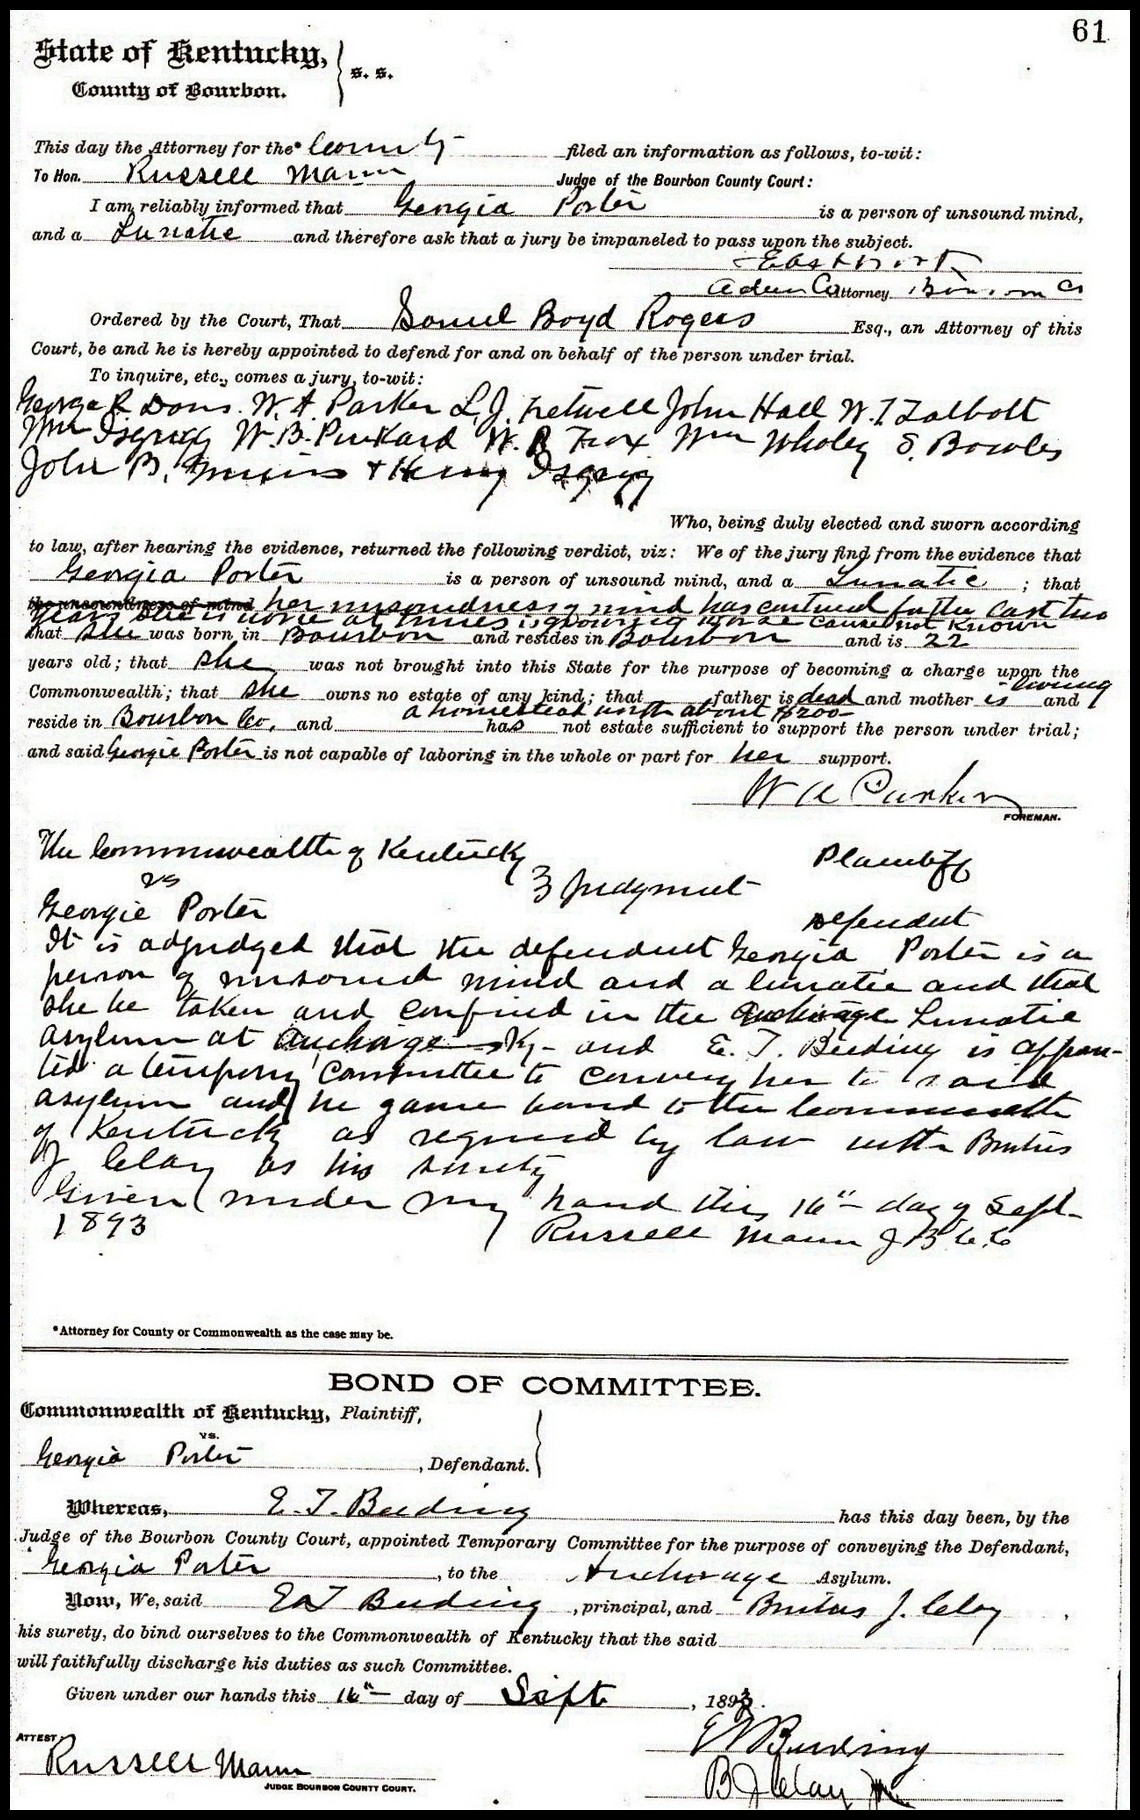 61
State of Kentucky,
County of Bourbon. } s. s.
This day the Attorney for the* County filed an information as follows, to-wit:
To Hon. Russell Mann Judge of the Bourbon County Court:
I am reliably informed that Georgia Porter is a person of unsound mind,
and a Lunatic and therefore ask that a jury be impaneled to pass upon the subject.
Attorney
Ordered by the Court, That Samuel Boyd Rogers Esq., an Attorney of this
Court, be and he is hereby appointed to defend for and on behalf of the person under trial.
To inquire, etc., comes a jury, to-wit:
George R Davis. W. A. Parker L. J. Fretwell John Hall W. T. Talbott
Wm Isgrigg W. B. Pinkard W. R. Wm Whaley S. Bowles
John B. & Henry Isgrigg
Who, being duly elected and sworn according
to law, after hearing the evidence, returned the following verdict, viz: We of the jury find from the evidence that
Georgia Porter is a person of unsound mind, and a Lunatic ; that
the unsoundness of mind her unsoundness of mind has continued for the last two
years she is worse at times is growing worse cause not known
that she was born in Bourbon and resides in Bourbon and is 22
years old; that she was not brought into this State for the purpose of becoming a charge upon the
Commonwealth; that she owns no estate of any kind; that father is dead and mother is living and
reside in Bourbon Co. and a homestead worth about $200 has not estate sufficient to support the person under trial;
and said Georgie Porter is not capable of laboring in the whole or part for her support.
W A Parker
FOREMAN.
The Commonwealth of Kentucky Plaintiff
vs } Judgment
Georgie Porter Defendent
It is adjudged that the defendent Georgia Porter is a
person of unsound mind and a lunatic and that
she be taken and confined in the Anchorage Lunatic
asylum at Anchorage Ky- and E. T. Beeding is appoin-
ted a temporry committee to convey her to said
asylum and he gave bond to the Commonwealth
of Kentucky as required by law with Brutus
J Clay as his surety
Given under my hand this 16" day of Sept-
1893 Russell Mann J B C C
*Attorney for County or Commonwealth as the case may be.
BOND OF COMMITTEE.
Commonwealth of Kentucky, Plaintiff,
vs.
Georgia Porter , Defendant. }
Whereas, E. T. Beeding has this day been, by the
Judge of the Bourbon County Court, appointed Temporary Committee for the purpose of conveying the Defendant,
Georgia Porter , to the Anchorage Asylum.
Now, We, said E T Beeding , principal, and Brutus J. Clay ,
his surety, do bind ourselves to the Commonwealth of Kentucky that the said
will faithfully discharge his duties as such Committee.
Given under our hands this 16" day of Sept , 1893.
E T Beeding
ATTEST
Russell Mann
JUDGE BOURBON COUNTY COURT.
B J Clay Jr